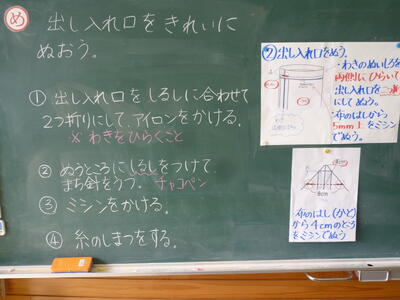 め 出し入れ口をきれいに
ぬおう。
① 出し入れ口をしるしに合わせて
2つ折りにして、アイロンをかける。
※ わきをひらくこと
② ぬうところにしるしをつけて
まち針をうつ。 チャコペン
③ ミシンをかける。
④ 糸のしまつをする。
⑦出し入れ口をぬう。
・わきのぬいしろを
両側にひらいて
出し入れ口を二つ折り
にしてぬう。
・布のはしから
5mm上をミシン
でぬう。
4cm
8cm
・布のはし(かど)
から4cmのところ
をミシンでぬう